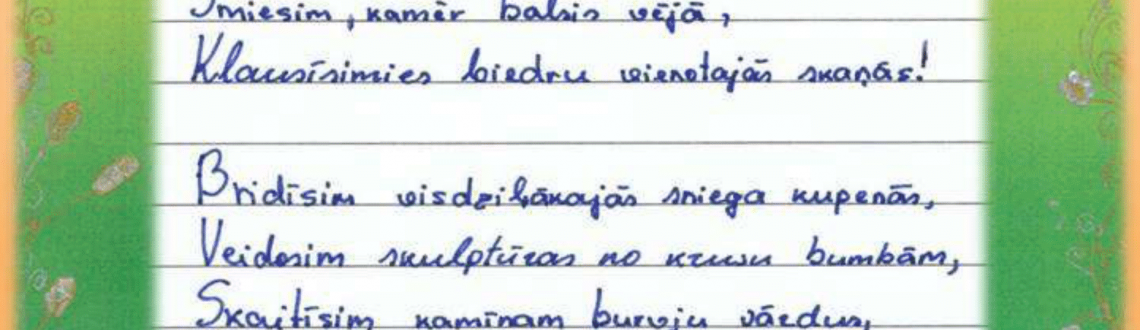 Smiesim, kamēr balsis vējā,
Klausīsimies biedru vienotajās skaņās!
Bridīsim visdziļākajās sniega kupenās,
Veidosim skulptūras no krusu bumbām,
Skaitīsim kamīnam burvju vārdus,